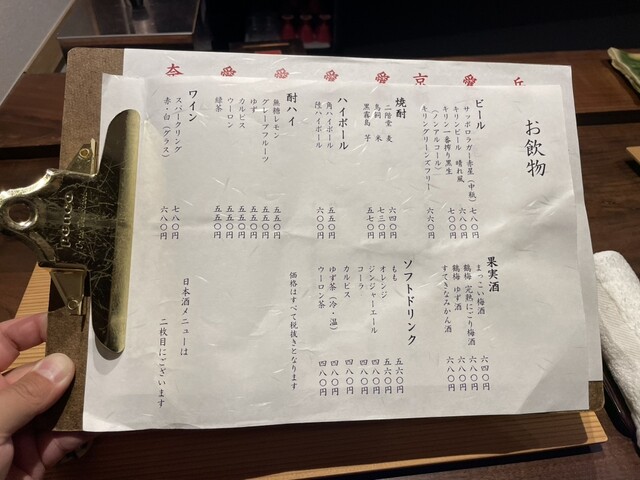 お飲物
ビール
サッポロラガー赤星(中瓶) 七八〇円
キリンビール 晴れ風 六八〇円
キリン一番搾り黒生 七〇〇円
(ノンアルコール)
キリングリーンズフリー 六六〇円
焼酎
二階堂 麦 六四〇円
鳥飼 米 七三〇円
黒霧島 芋 五七〇円
ハイボール
角ハイボール 五五〇円
陸ハイボール 六〇〇円
酎ハイ
無糖レモン 五五〇円
グレープフルーツ 五五〇円
ゆず 五五〇円
カルピス 五五〇円
ウーロン 五五〇円
緑茶 五五〇円
ワイン
スパークリング 七八〇円
赤・白(グラス) 六八〇円
果実酒
まっこい梅酒 六四〇円
鶴梅 完熟にごり梅酒 六八〇円
鶴梅 ゆず酒 六八〇円
すてきなみかん酒 六八〇円
ソフトドリンク
もも 五六〇円
オレンジ 五六〇円
ジンジャーエール 四八〇円
コーラ 四八〇円
カルピス 四八〇円
ゆず茶(冷・温) 四八〇円
ウーロン茶 四八〇円
価格はすべて税抜きとなります
日本酒メニューは
二枚目にございます
penco